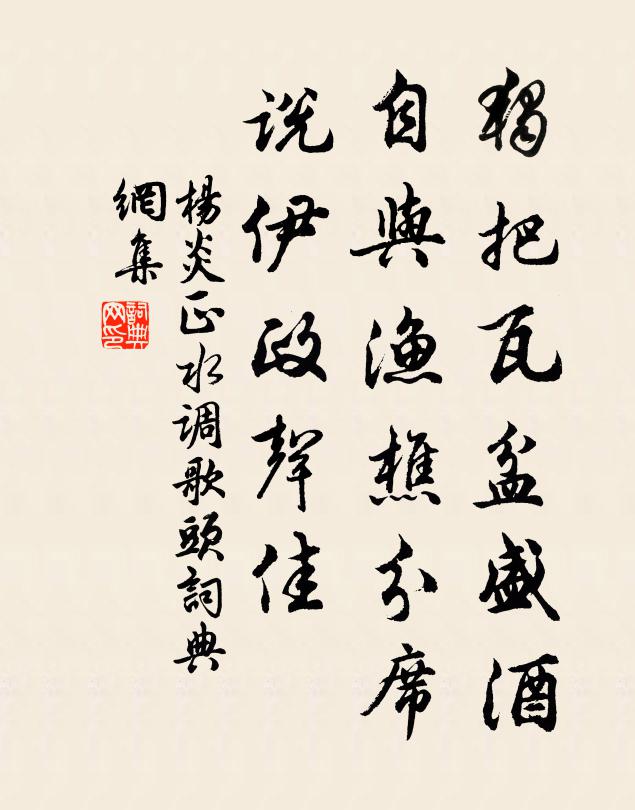 獨把瓦盆盛酒
自與漁樵分席
說伊政聲佳
楊炎正水调歌頭詞典
網集
詞典
网印